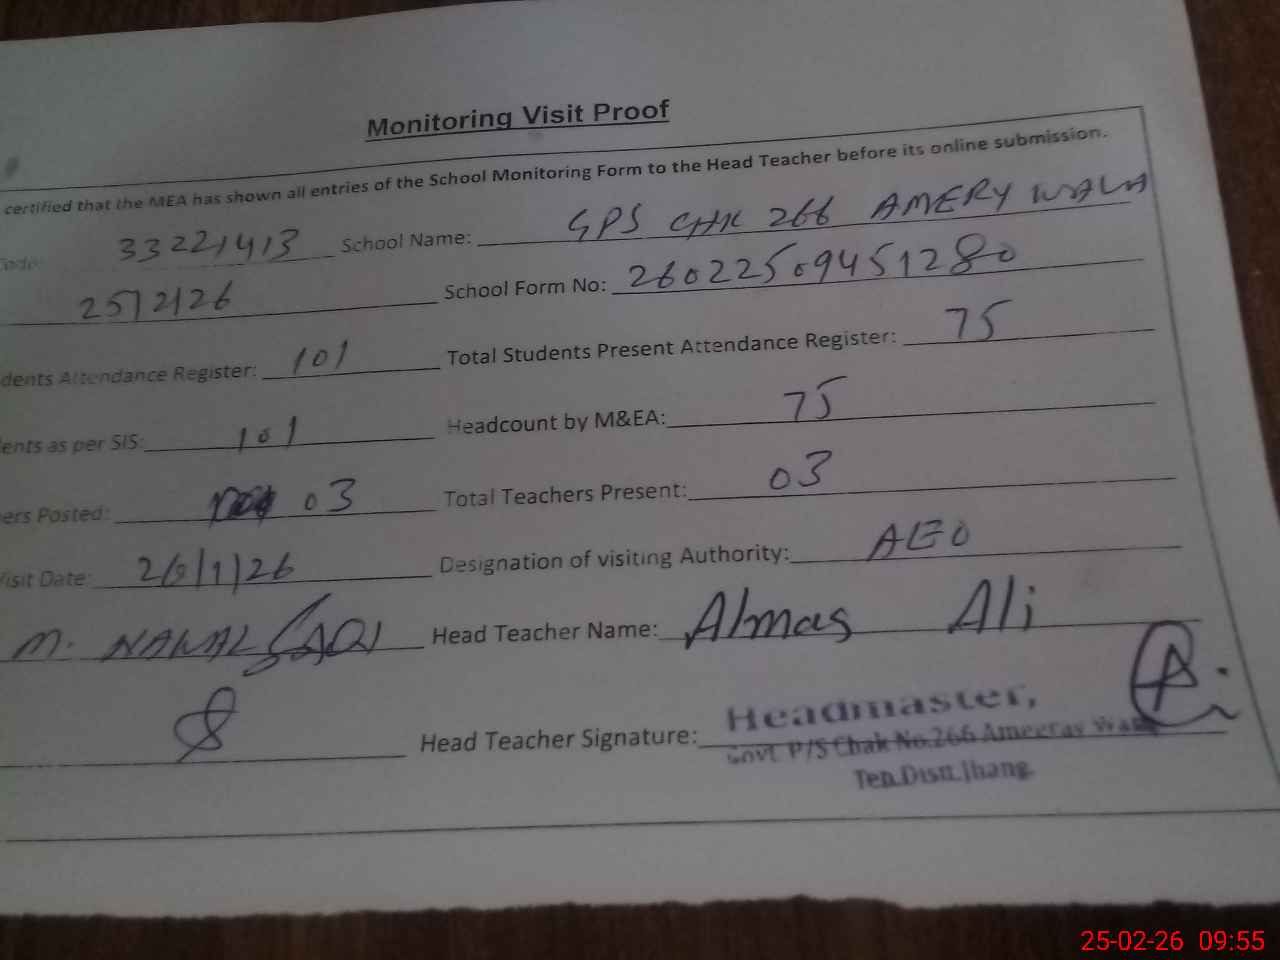 Monitoring Visit Proof
certified that the MEA has shown all entries of the School Monitoring Form to the Head Teacher before its online submission.
Code: 33221413 School Name: GPS CHK 266 AMERY WALA
25/2/26 School Form No: 26022509451280
dents Attendance Register: 101 Total Students Present Attendance Register: 75
ents as per SIS: 101 Headcount by M&EA: 75
ers Posted: 03 Total Teachers Present: 03
Visit Date: /1/26 Designation of visiting Authority: AEO
M. NAWAL Head Teacher Name: Almas Ali
Head Teacher Signature:
Headmaster,
Govt. P/S Chak No.266 Ameeray Wala
Teh.Distt.Jhang.
25-02-26 09:55